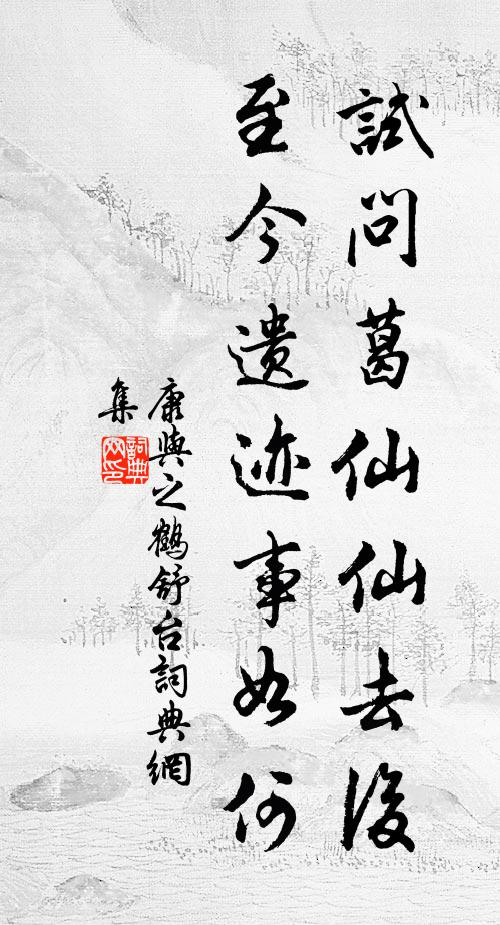 試問葛仙仙去後
至今遺迹事如何
康與之鶴舒台詞典網
集
詞典网印